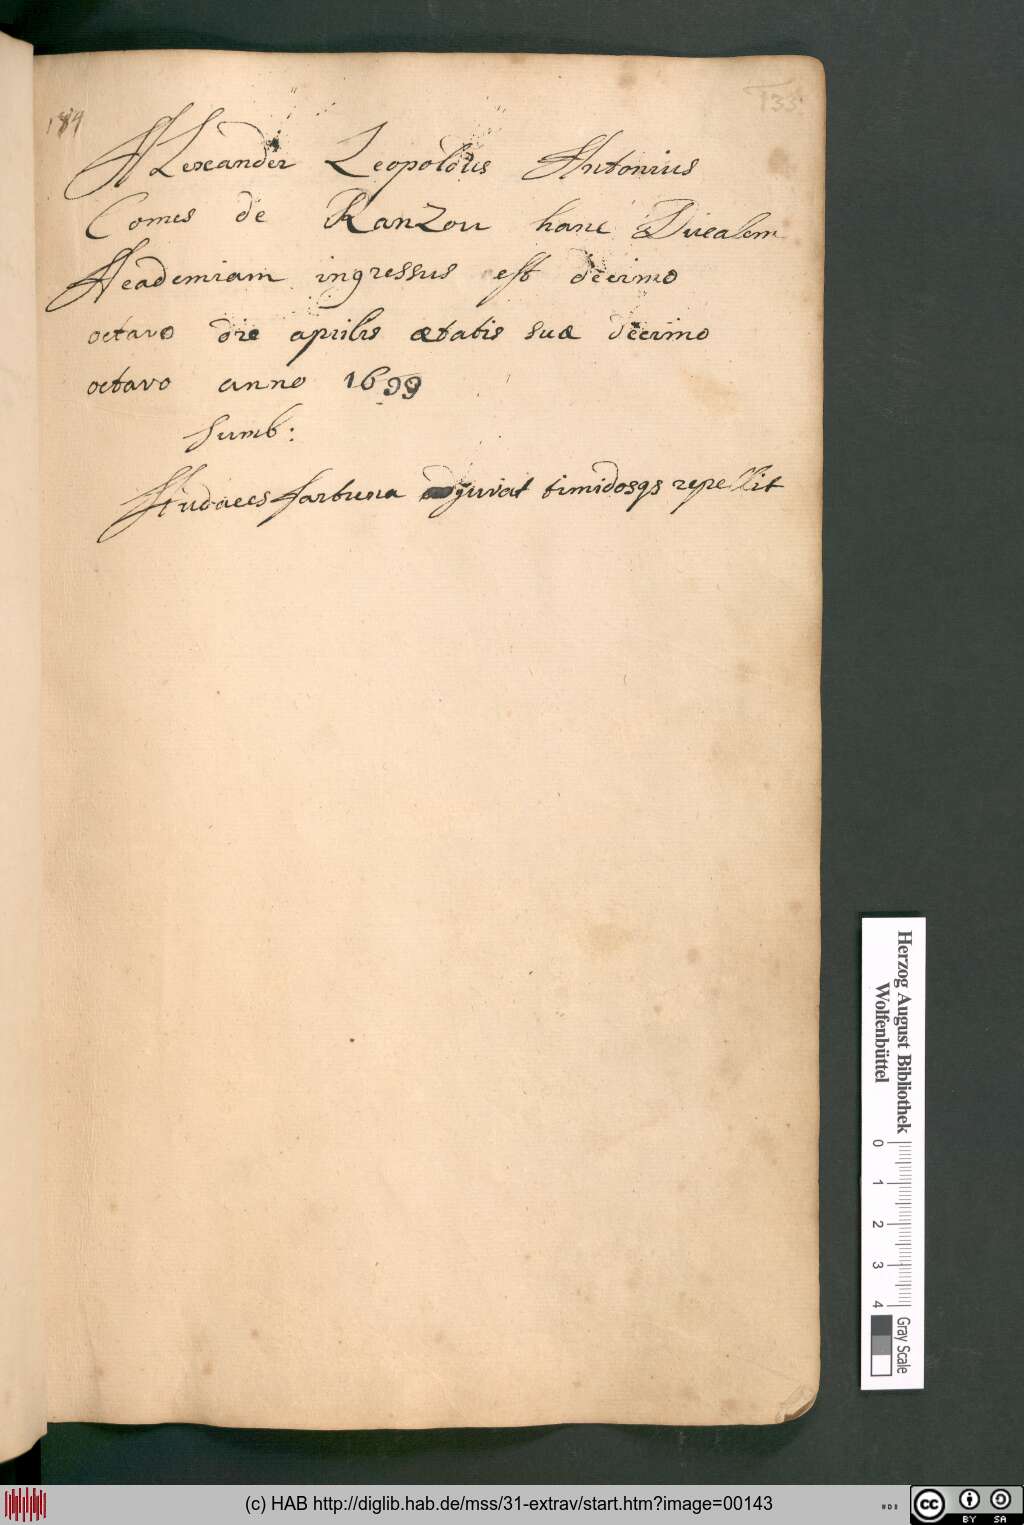 133
184
ALexander Leopoldus Antonius
Comes de RanZou hanc Ducalem
Academiam ingressus est decimo
octavo die aprilis ætatis suæ decimo
octavo anno 1699
Sumb:
Audaces fortuna adjuvat timidosqs repellit
Herzog August Bibliothek
Wolfenbüttel
0 1 2 3 4
Gray Scale
(c) HAB http://diglib.hab.de/mss/31-extrav/start.htm?image=00143
cc BY SA